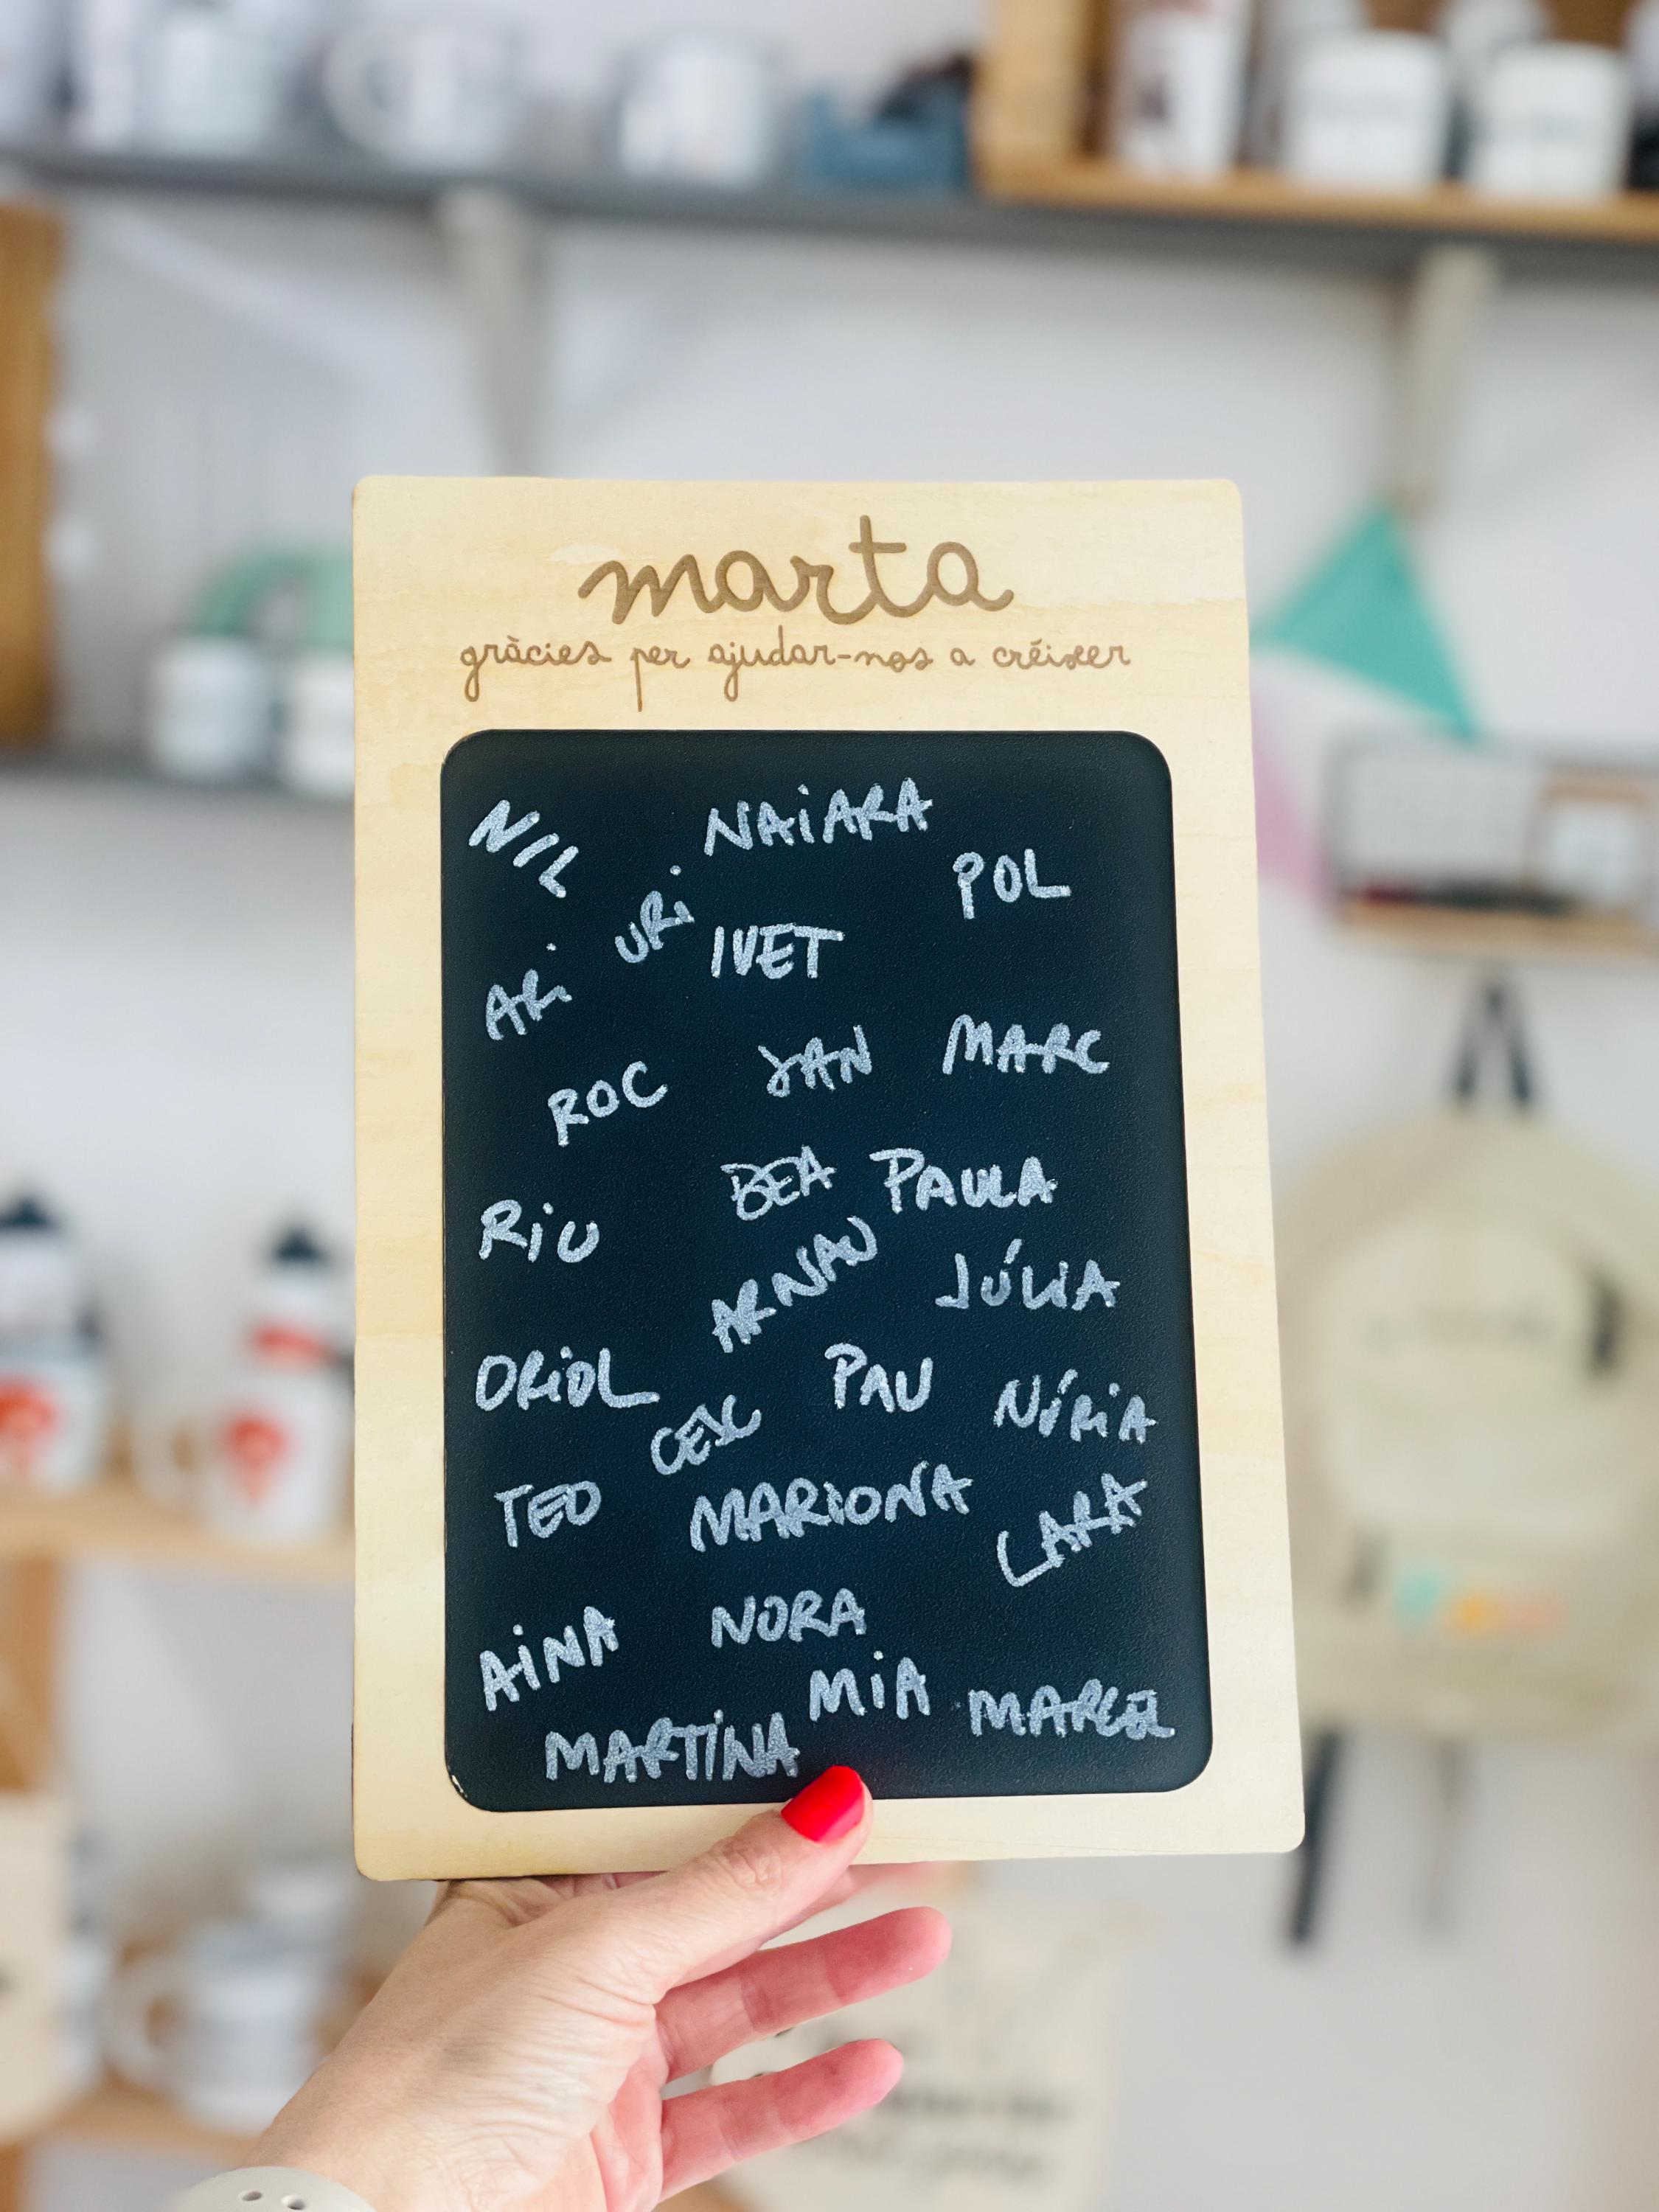 marta
gràcies per ajudar-nos a créixer
NIL
NAiARA
POL
URi
IVET
ARi
ROC
JAN
MARC
BEA
PAULA
RiU
ARNAU
JÚLIA
ORiOL
PAU
NÚRiA
CESC
TEO
MARIONA
LARA
NORA
AiNA
MiA
MARÇAL
MARTiNA